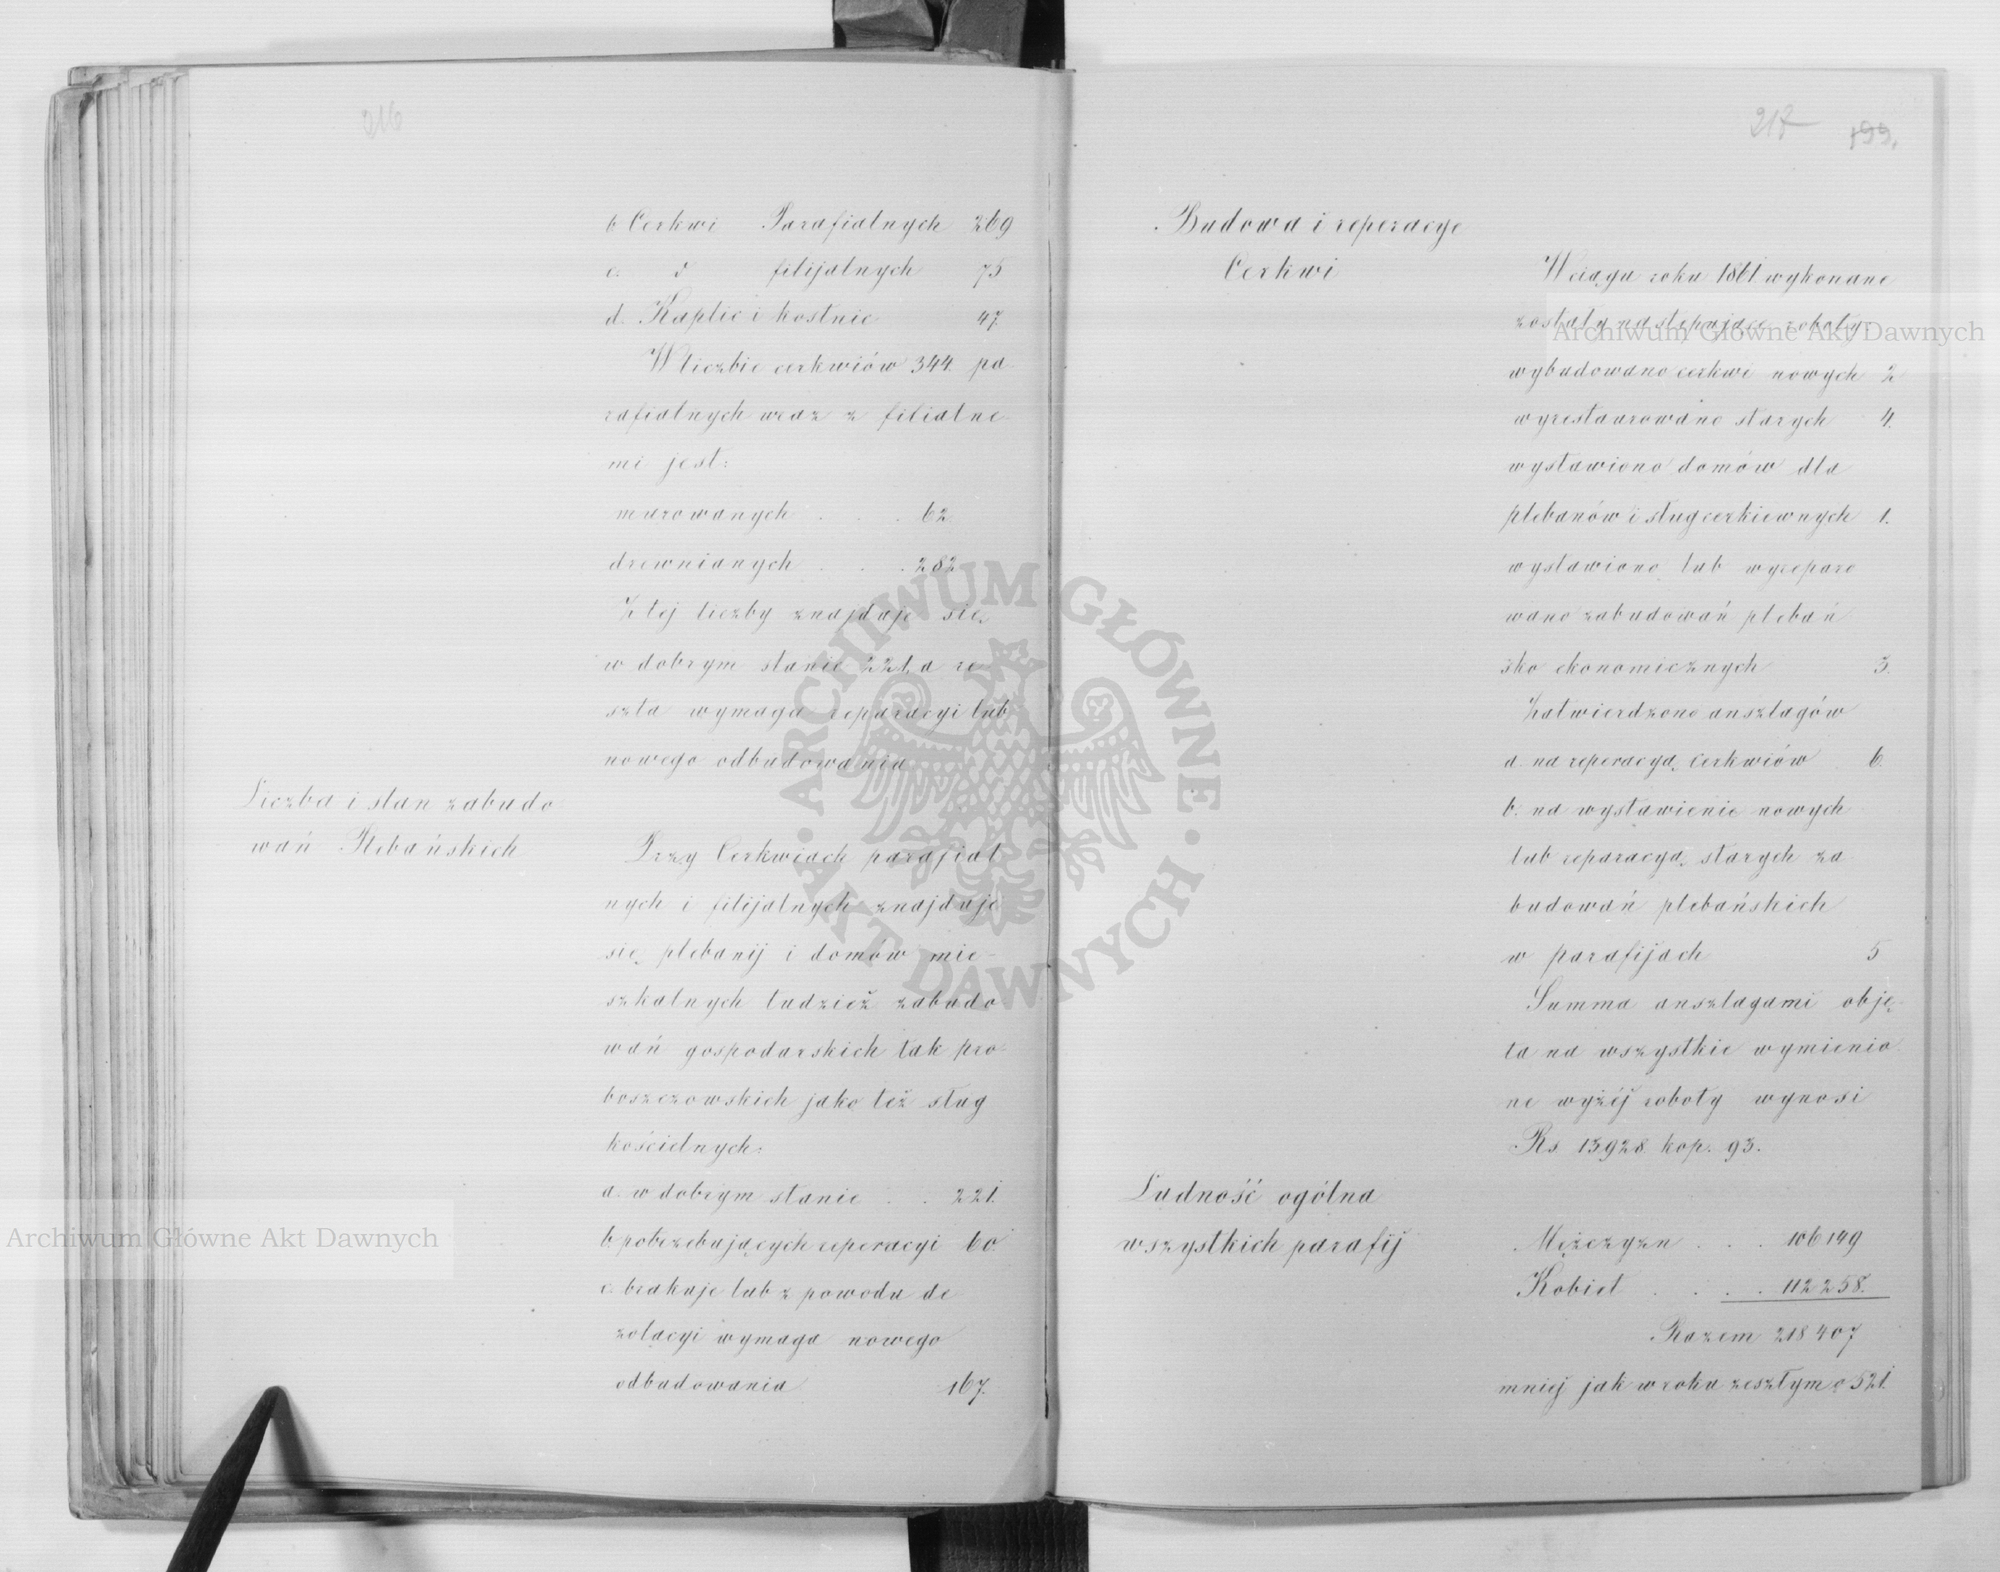 216
b Cerkwi Parafialnych 269
c. d filijalnych 75
d. Kaplic i kostnic 47.
W liczbie cerkwiów 344. pa-
rafialnych wraz z filialne-
mi jest:
murowanych . . . 62
drewnianych . . . 282
Z tej liczby znajduje się
w dobrym stanie 221, a re-
szta wymaga reparacyi lub
nowego odbudowania
Liczba i stan zabudo-
wań Plebańskich
Przy Cerkwiach parafial
nych i filijalnych znajduje
się plebanij i domów mie-
szkalnych tudzież zabudo
wań gospodarskich tak pro-
boszczowskich jako też sług
kościelnych:
a. w dobrym stanie . . 221.
b. potrzebujących reperacyi 60.
c. brakuje lub z powodu de
zolacyi wymaga nowego
odbudowania 167.
217 199.
Budowa i reperacye
Cerkwi
W ciągu roku 1861 wykonane
zostały następujące roboty:
wybudowano cerkwi nowych 2
wyrestaurowano starych 4.
wystawiono domów dla
plebanów i sług cerkiewnych 1.
wystawiono lub wyrepero
wano zabudowań plebań
sko ekonomicznych 3.
Zatwierdzono anszlagów
a. na reperacyą cerkwiów 6.
b. na wystawienie nowych
lub reparacyą starych za-
budowań plebańskich
w parafijach 5
Summa anszlagami obję-
ta na wszystkie wymienio-
ne wyżéj roboty wynosi
Rs 13928. kop. 93.
Ludność ogólna
wszystkich parafij
Mężczyzn . . . 106149
Kobiet . . . . 112258.
Razem 218407
mniej jak w roku zeszłym o 521.
Archiwum Główne Akt Dawnych
Archiwum Główne Akt Dawnych
ARCHIWUM GŁÓWNE · AKT DAWNYCH ·